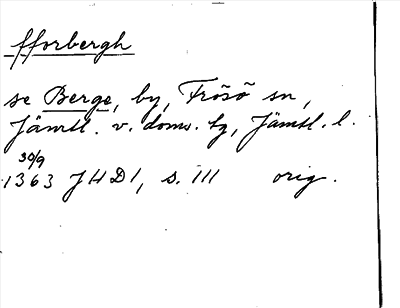 fforbergh
se Berge, by, Frösö sn,
Jämtl. v. doms. tg, Jämtl. l.
30/9
1363 JHD 1, s. 111 orig.